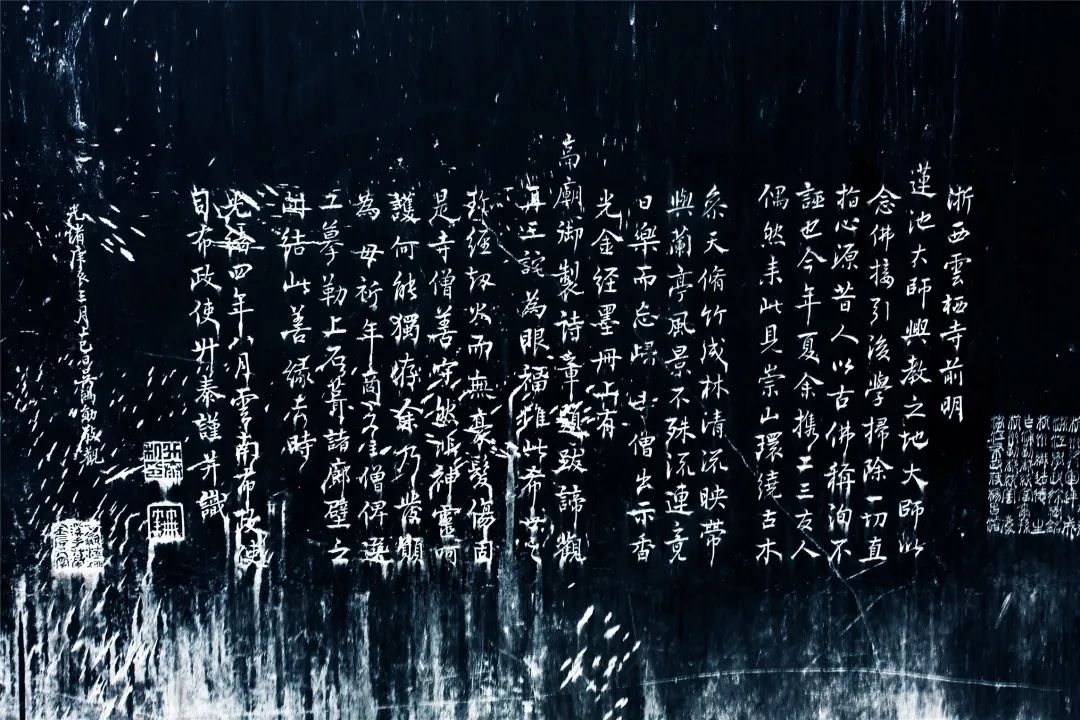 浙西雲栖寺前明
蓮池大師興教之地大師以
念佛接引後學掃除一切直
指心源昔人以古佛稱洵不
誣也今年夏余携二三友人
偶然来此見崇山環繞古木
糸天脩竹成林清流映帶
與蘭亭風景不殊流連竟
日樂而忘歸寺僧出示香
光金経墨冊上有
高廟御製詩章題跋諦觀
再三詫為眼福推此希世之
珎経刼火而無豪髮傷固
是寺僧善守然非神靈呵
護何能獨存余乃發願
為母祈年商之主僧俾選
工摹勒上石嵌諸廊壁之
結此善緣時
光緒四年八月雲南布政使
自布政使升泰謹并識
光緒庚辰三月敬觀